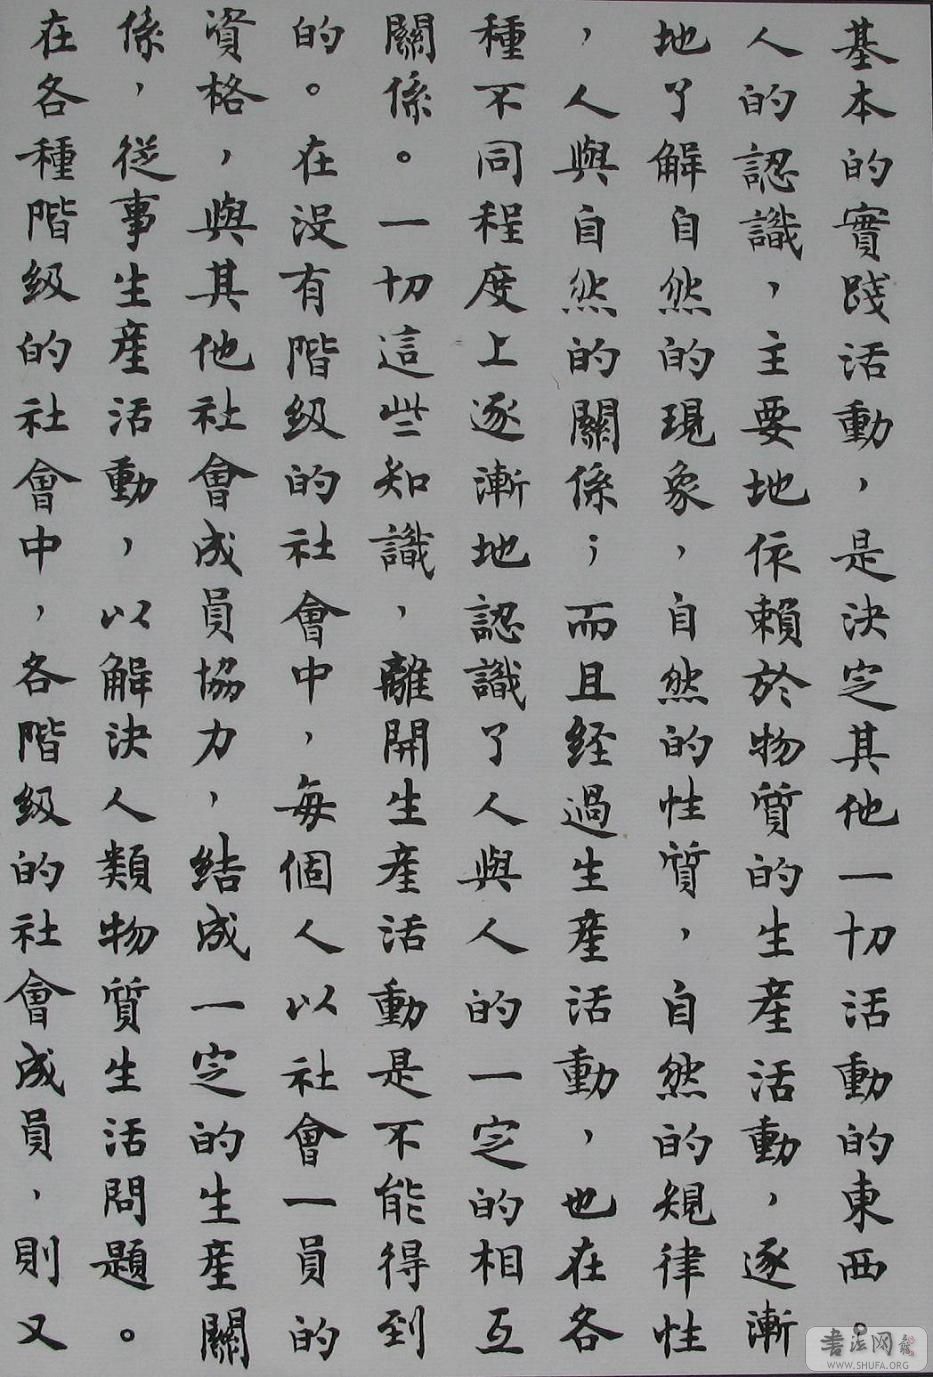 基本的實踐活動，是決定其他一切活動的東西。
人的認識，主要地依賴於物質的生產活動，逐漸
地了解自然的現象，自然的性質，自然的規律性
，人與自然的關係；而且經過生產活動，也在各
種不同程度上逐漸地認識了人與人的一定的相互
關係。一切這些知識，離開生產活動是不能得到
的。在沒有階級的社會中，每個人以社會一員的
資格，與其他社會成員協力，結成一定的生產關
係，從事生產活動，以解決人類物質生活問題。
在各種階級的社會中，各階級的社會成員，則又
書法网
WWW.SHUFA.ORG